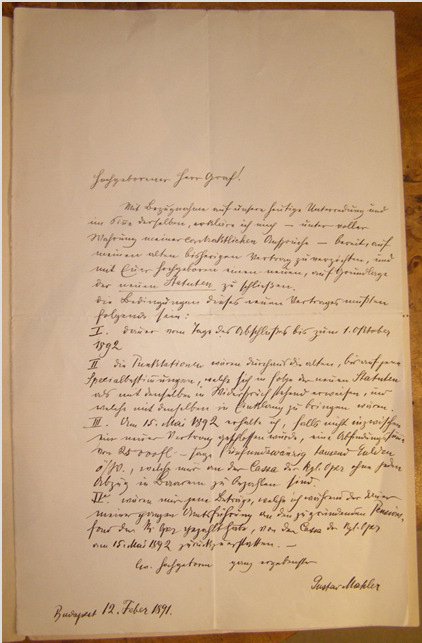 Hochgeborener Herr Graf!
Mit Bezugnahme auf unsere heutige Unterredung und
im Sinne derselben, erkläre ich mich – unter voller
Wahrung meiner contraktlichen Ansprüche – bereit, auf
meinen alten bisherigen Vertrag zu verzichten, und
mit Euer Hochgeboren einen neuen, auf Grundlage
der neuen Statuten zu schließen.
Die Bedingungen dieses neuen Vertrages müßten
folgende sein:
I. Dauer vom Tage des Abschlußes bis zum 1. Oktober
1892
II Die Punktationen wären durchaus die alten, bis auf jene
Spezialbestimmungen, welche sich in Folge der neuen Statuten
als mit denselben in Widerspruch stehend erweisen, und
welche mit denselben in Einklang zu bringen wären.
III. Am 15. Mai 1892 erhalte ich, falls nicht inzwischen
ein neuer Vertrag geschlossen würde, eine Abfindungssumme
von 25000 fl – sage fünfundzwanzig tausend Gulden
ö/W., welche mir an der Cassa der kgl. Oper ohne jeden
Abzug in Baarem zu bezahlen sind.
IV. wären mir jene Beträge, welche ich während der Dauer
meiner ganzen Amtsführung an den zu gründenden Pensions-
fond der kgl. Oper gezahlt habe, von der Cassa der kgl. Oper
am 15. Mai 1892 zurückzuerstatten. –
Ew. Hochgeboren ganz ergebenster
Gustav Mahler
Budapest 12. Feber 1891.